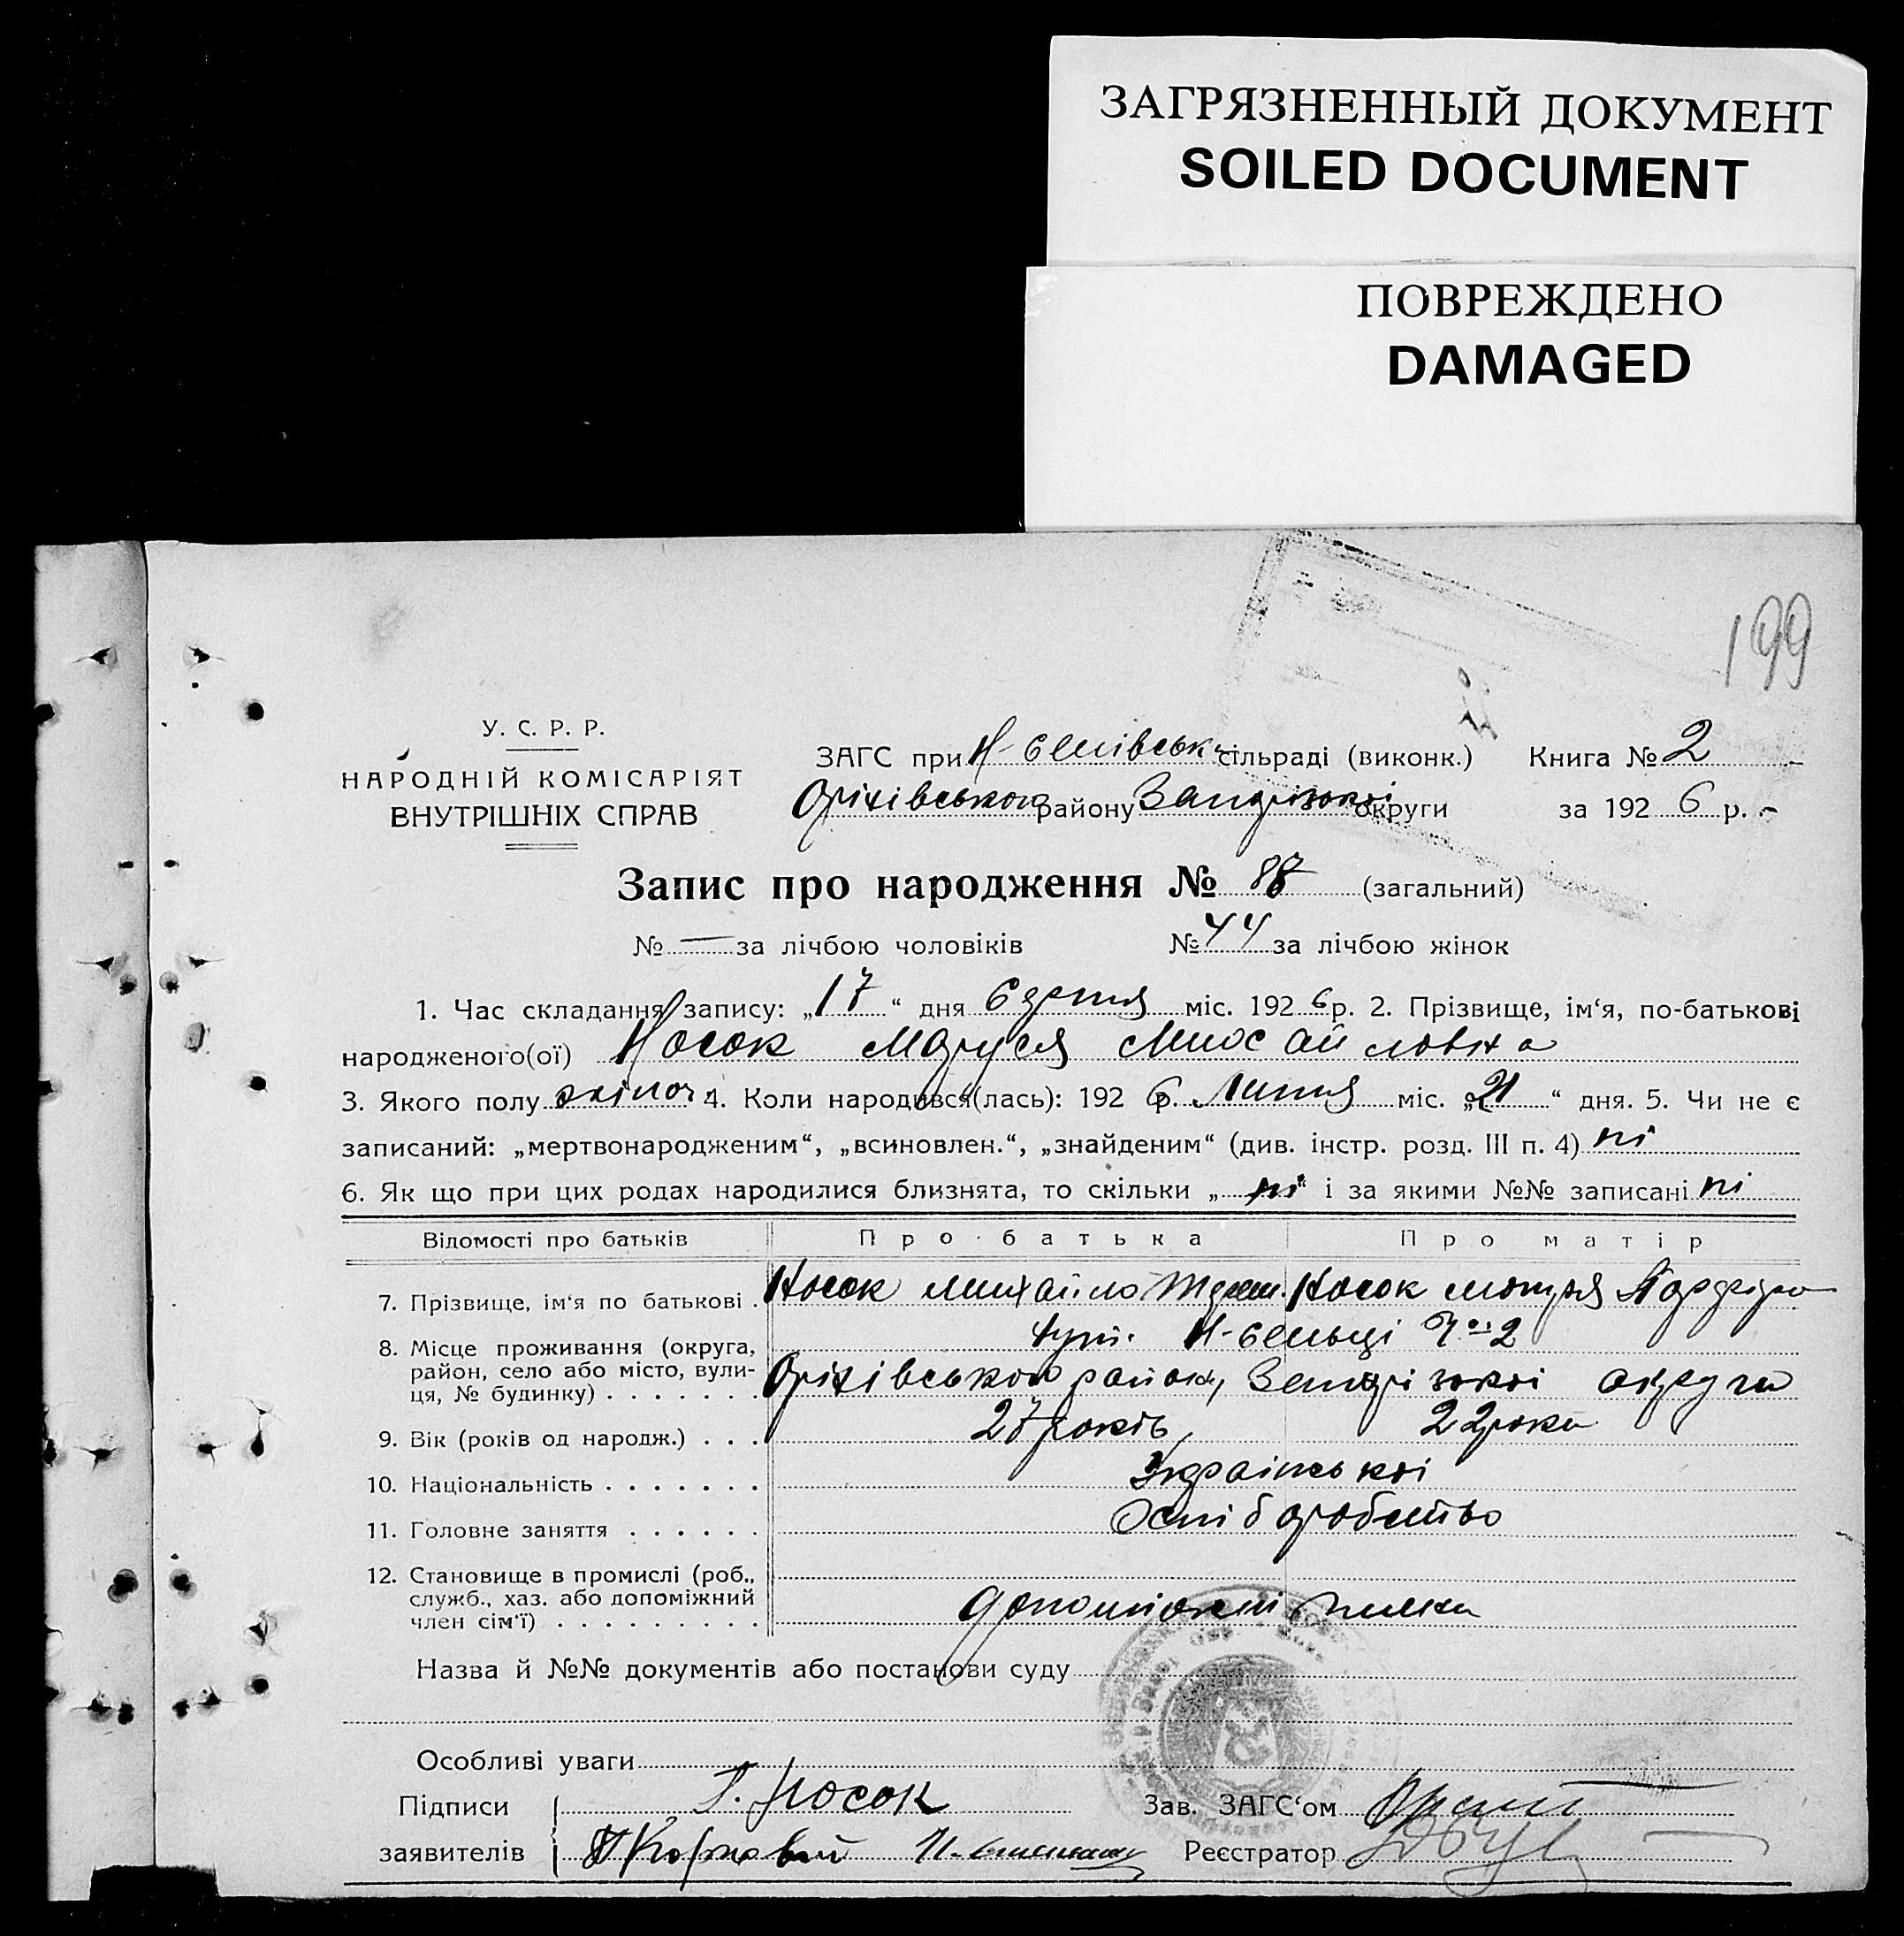 ЗАГРЯЗНЕННЫЙ ДОКУМЕНТ
SOILED DOCUMENT
ПОВРЕЖДЕНО
DAMAGED
199
У. С. Р. Р.
НАРОДНІЙ КОМІСАРІЯТ
ВНУТРІШНІХ СПРАВ
ЗАГС при сільраді (виконк.) Книга № 2
Оріхівського району округи за 1926 р.
Запис про народження № 88 (загальний)
№ — за лічбою чоловіків № 44 за лічбою жінок
1. Час складання запису: „17“ дня серпня міс. 1926 р. 2. Прізвище, ім‘я, по-батькові
народженого(ої) Носок Маруся Михайловна
3. Якого полу жіноч. 4. Коли народився(лась): 1926 р. Липня міс. „21“ дня. 5. Чи не є
записаний: „мертвонародженим“, „всиновлен.“, „знайденим“ (див. інстр. розд. III п. 4) ні
6. Як що при цих родах народилися близнята, то скільки „ні“ і за якими №№ записані ні
Відомості про батьків Про батька Про матір
7. Прізвище, ім‘я по батькові . Носок Михайло Носок Мотря
8. Місце проживання (округа, район, село або місто, вулиця, № будинку) . . . . . . . хут.
Оріхівського району, округи
9. Вік (років од народж.) . . . 27 років 22 роки
10. Національність . . . . . . . Українські
11. Головне заняття . . . . . . Хліборобство
12. Становище в промислі (роб., служб., хаз. або допоміжний член сім‘ї) . . . . . . . . . допоміжні члени
Назва й №№ документів або постанови суду
Особливі уваги
Підписи Г. Носок Зав. ЗАГС‘ом
заявителів Реєстратор